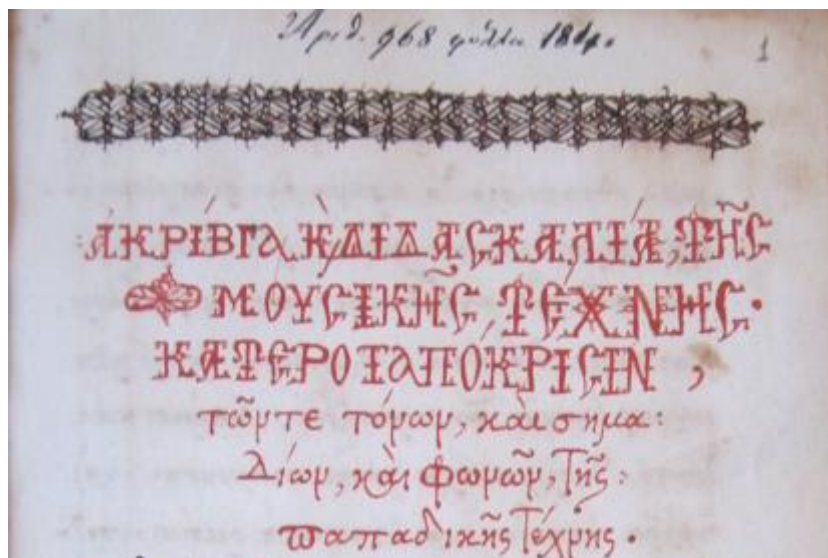 Ἀριθ. 968 φύλλα 184.
1
ἀκρίβγα κ(αὶ) διδασκαλία, τῆς
μουσικῆς, τέχνης.
κατεροταπόκρισιν,
τῶντε τόνων, καὶ σημα:
δίων, καὶ φωνῶν, τῆς:
παπαδικῆς τέχνης.